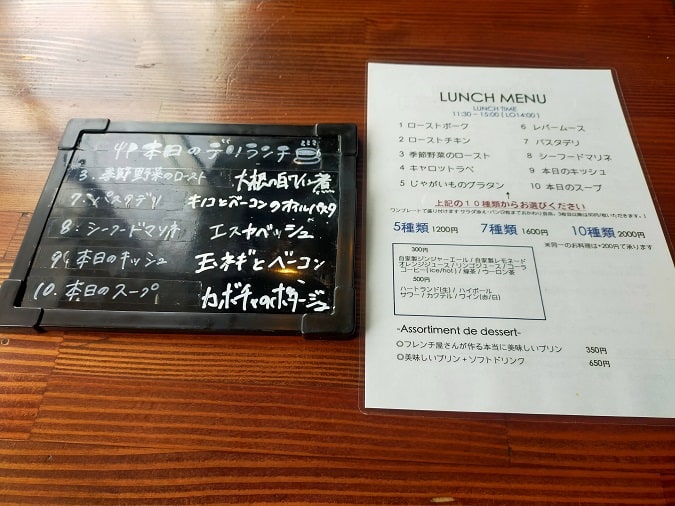 本日のデリランチ
3. 季節野菜のロースト 大根の白ワイン煮
7. パスタデリ キノコとベーコンのオイルパスタ
8. シーフードマリネ エスカベッシュ
9. 本日のキッシュ 玉ネギとベーコン
10. 本日のスープ カボチャのポタージュ
LUNCH MENU
LUNCH TIME
11:30 - 15:00 ( LO14:00 )
1 ローストポーク 6 レバームース
2 ローストチキン 7 パスタデリ
3 季節野菜のロースト 8 シーフードマリネ
4 キャロットラペ 9 本日のキッシュ
5 じゃがいものグラタン 10 本日のスープ
上記の10種類からお選びください
5種類 1200円 7種類 1600円 10種類 2000円
※同一のお料理は+200円で承ります
300円
自家製ジンジャーエール / 自家製レモネード
オレンジジュース / リンゴジュース / コーラ
コーヒー(ice/hot) / 緑茶 / ウーロン茶
500円
ハートランド(生) / ハイボール
サワー / カクテル / ワイン(赤/白)
-Assortiment de dessert-
○フレンチ屋さんが作る本当に美味しいプリン 350円
○美味しいプリン+ソフトドリンク 650円